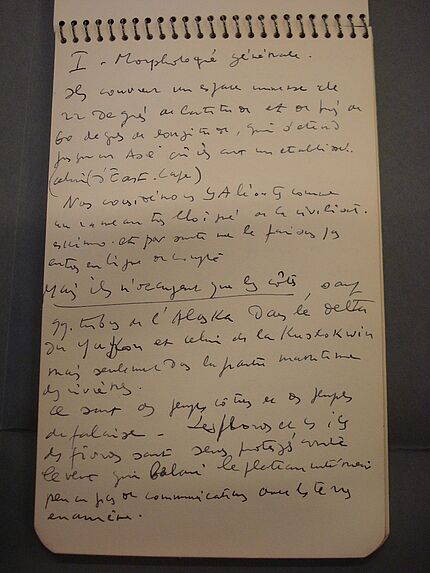 I - Morphologie générale.
Ils couvrent un espace immense de
22 degrés de latitude et de près de
60 degrés de longitude, qui s'étend
jusqu'en Asie où ils ont un établisst.
(celui d'East. Cape)
Nous considérons les Aléouts comme
un rameau très éloigné de la civilisat.
eskimo. et par suite ne le faisons pas
entrer en ligne de compte
Mais ils n'occupent que les côtes, sauf
qq. tribus de l'Alaska Dans le delta
du Yukon et celui de la Kuskokwim
mais seulement Ds la partie maritime
des rivières.
Ce sont des peuples côtiers et des peuples
de falaise - Les fleuves et les
des fiords sont seuls protégés contre
le vent qui balaie le plateau intérieur
peu ou pas de communications avec les terres
en arrière.